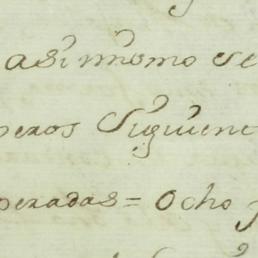 asimismo se
peros Siguien
peradas = Ocho